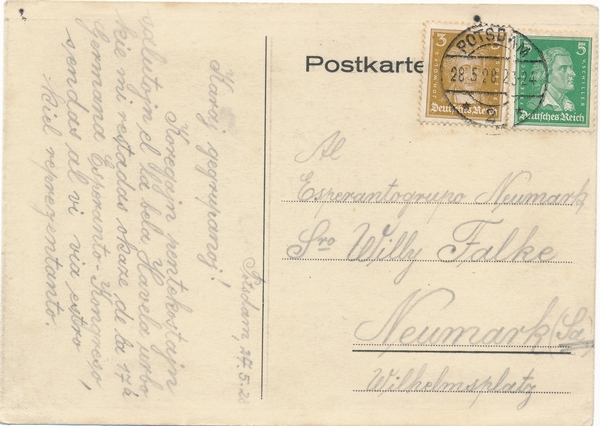 Potsdam, 27.5.28
Karaj gegrupanoj!
Koregajn pentekostajn
salutojn el la bela Havela urbo
kie mi restadas okaze de la 17a
Germana Esperanto-Kongreso
sendas al vi via estro,
kiel reprezentanto.
Postkarte
3
Deutsches Reich
5
Deutsches Reich
POTSDAM
28.5.28
Al
Esperantogrupo Neumark
Sro Willy Falke
Neumark (Sa)
Wilhelmsplatz